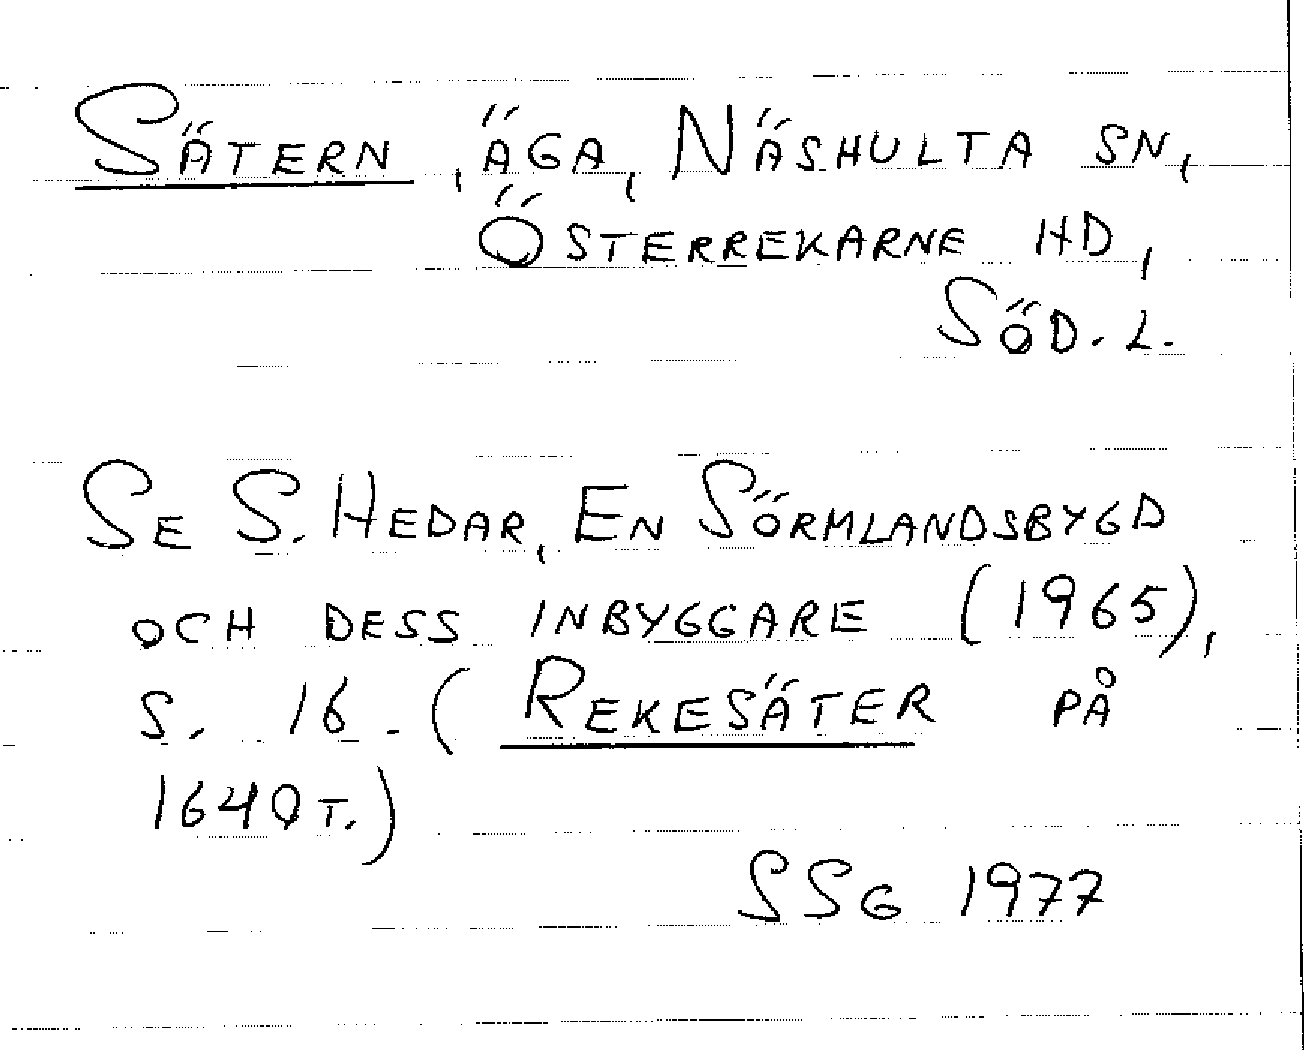 SÄTERN, ÄGA, NÄSHULTA SN,
ÖSTERREKARNE HD,
SÖD. L.
SE S. HEDAR, EN SÖRMLANDSBYGD
OCH DESS INBYGGARE (1965),
S. 16. (REKESÄTER PÅ
1640 T.)
SSG 1977